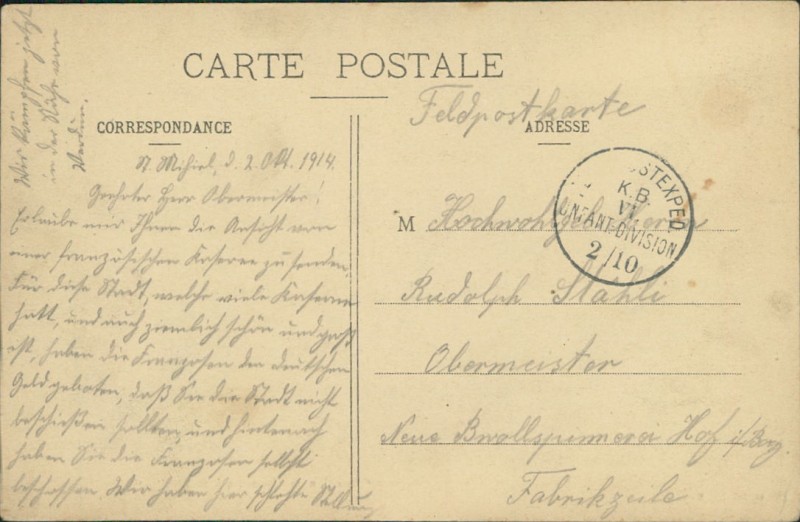 CARTE POSTALE
Feldpostkarte
CORRESPONDANCE
ADRESSE
St. Mihiel, d. 2. Okt. 1914.
Geehrter Herr Obermeister!
Erlaube mir Ihnen die Ansicht von
einer französischen Kaserne zu senden.
Für diese Stadt, welche viele Kasernen
hatt, und auch ziemlich schön und groß
ist, haben die Franzosen den deutschen
Geld geboten, daß Sie die Stadt nicht
beschießen sollten, und hintenach
haben Sie die Franzosen selbst
beschossen. Wir haben hier schlechte Stellung
Wir kämpfen jetzt
in der Nähe von
Verdun.
M Hochwohlgeb. Herrn
Rudolph Stahli
Obermeister
Neue Bwollspinnerei Hof i/Bay.
Fabrikzeile
K.B.
VI
INFANT-DIVISION
2/10